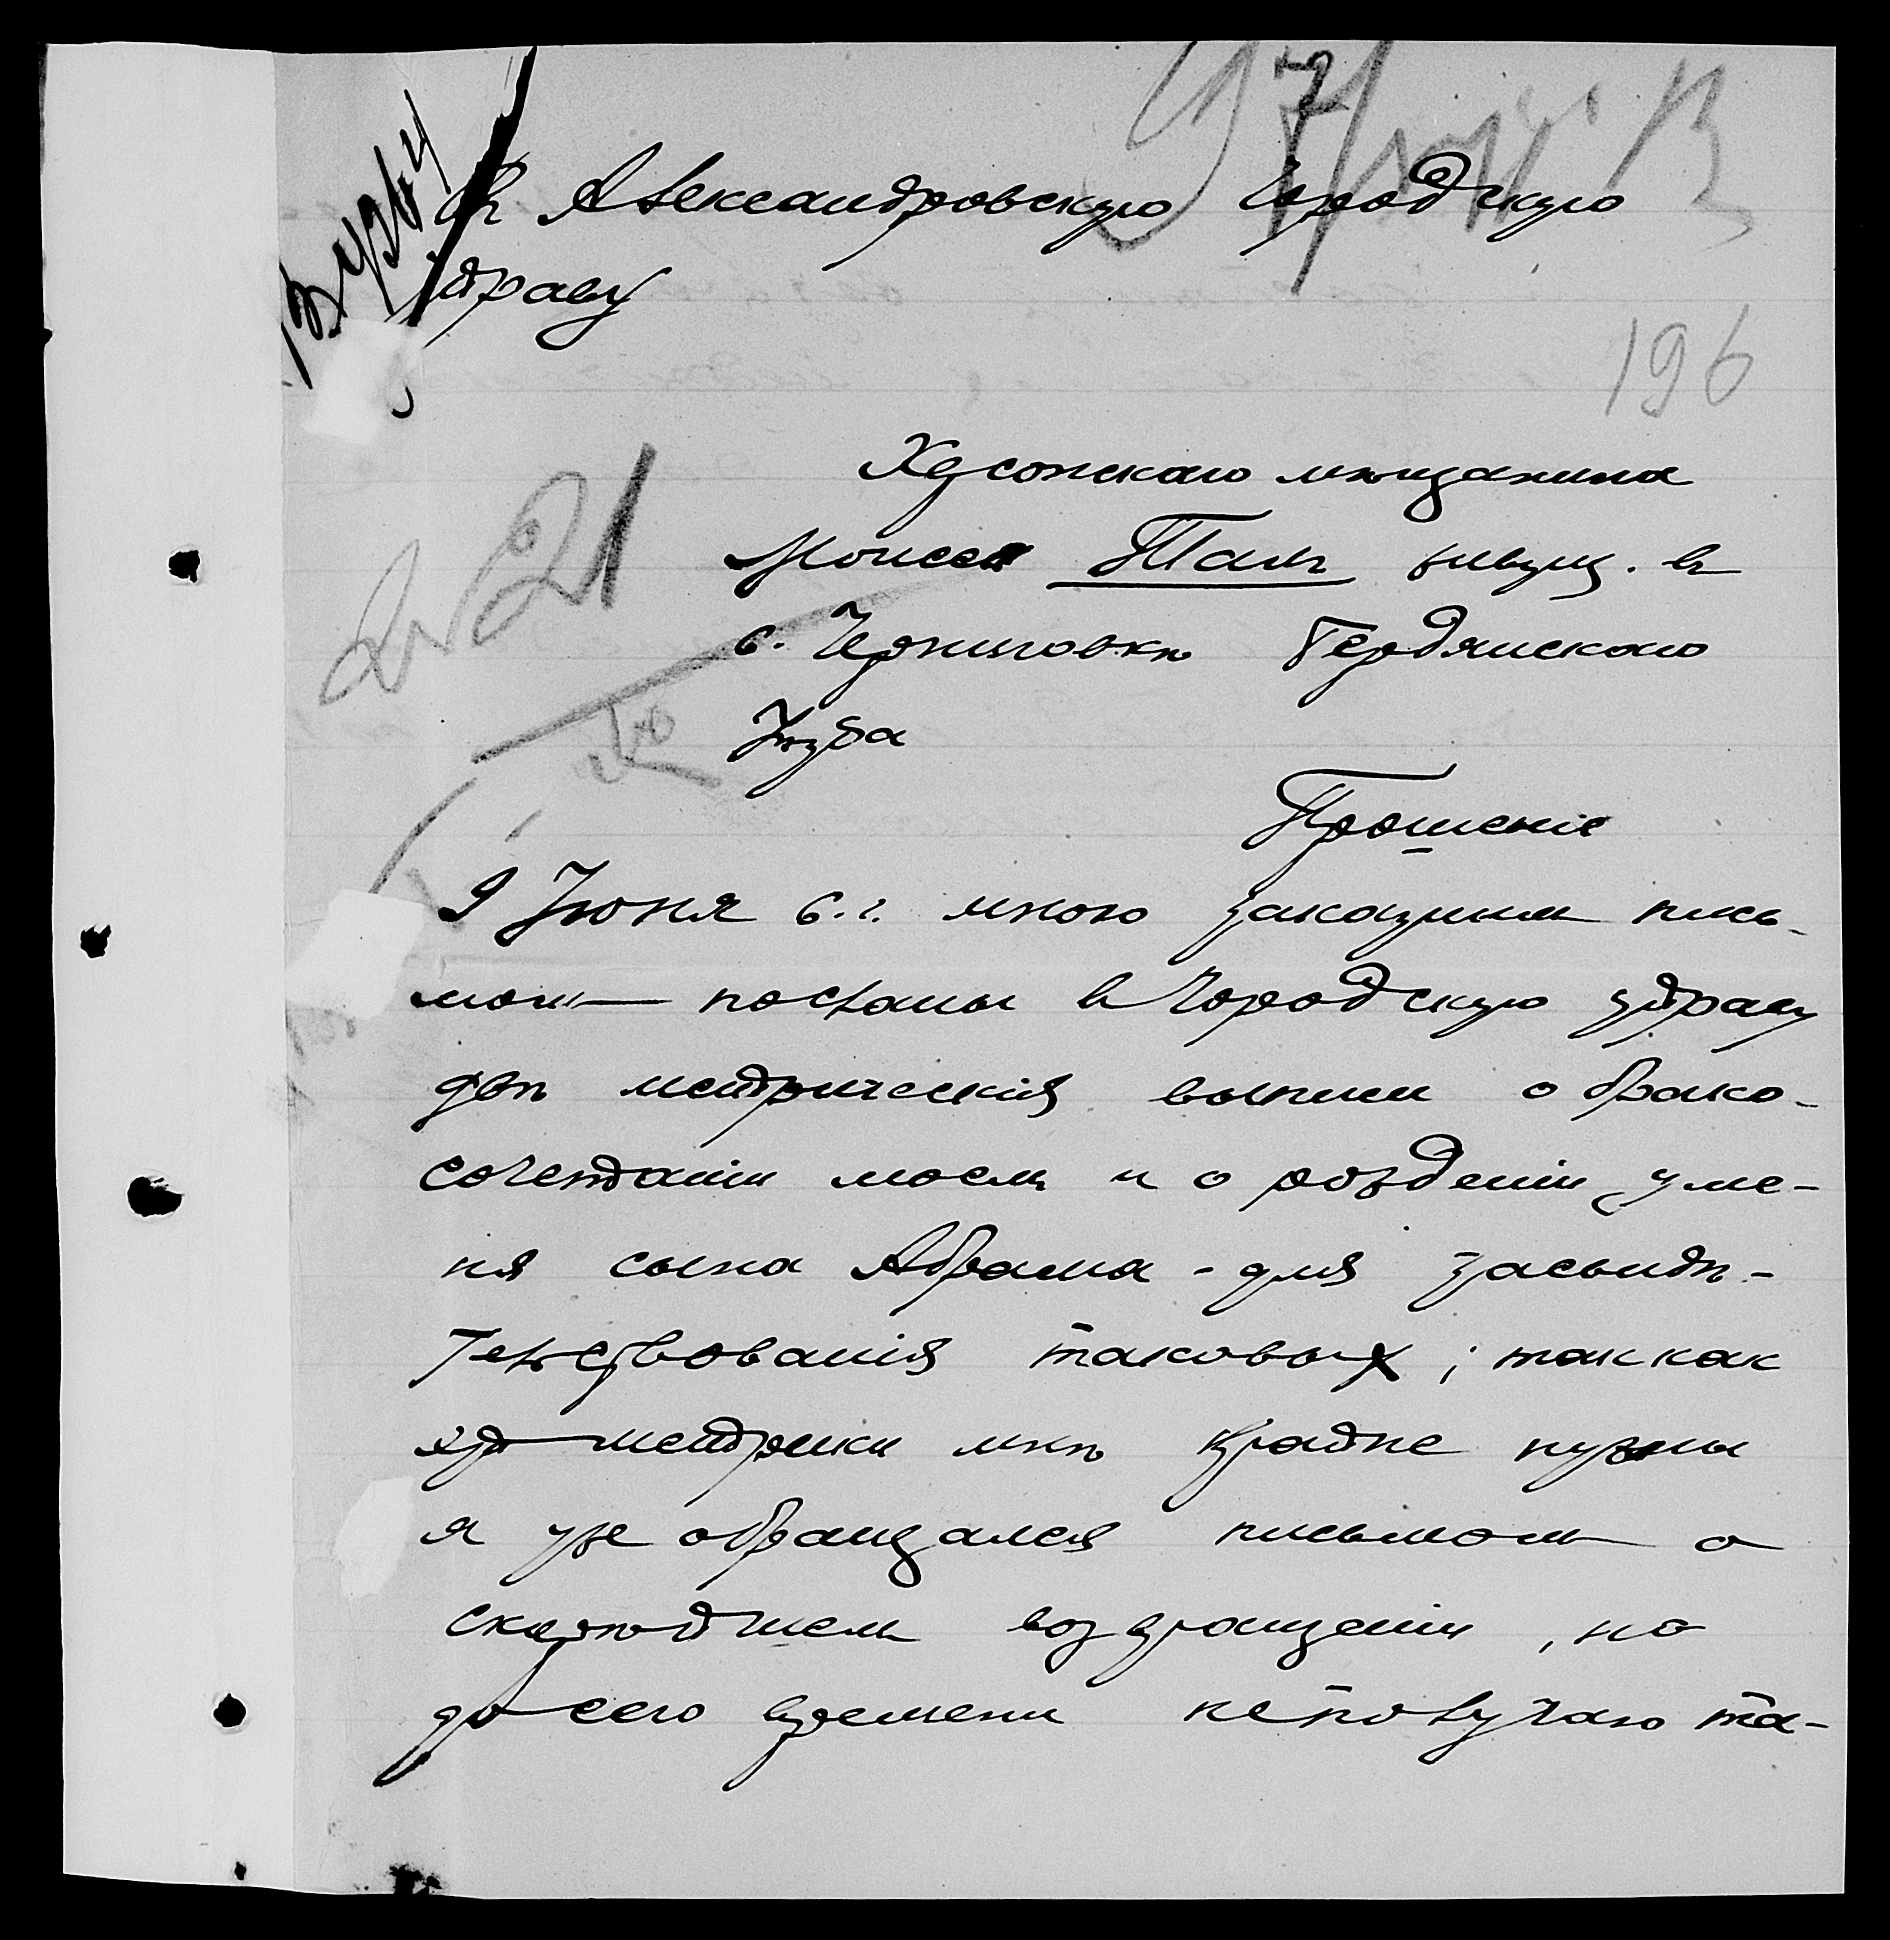 Въ Александровскую Городскую
Управу
196
Херсонскаго мѣщанина
Моисея Таль живущ. въ
с. Черниговкѣ Бердянскаго
Уѣзда
Прошеніе
9 Іюня с.г. мною заказным пись-
мом посланы в Городскую управу
двѣ метрическія выписи о брако-
сочетаніи моем и о рождении у ме-
ня сына Абрама - для засвидѣ-
тельствованія таковых; так как
эти метрики мнѣ крайне нужны
я уже обращался письмом о
скорѣйшем возвращеніи, но
до сего времени не получаю та-